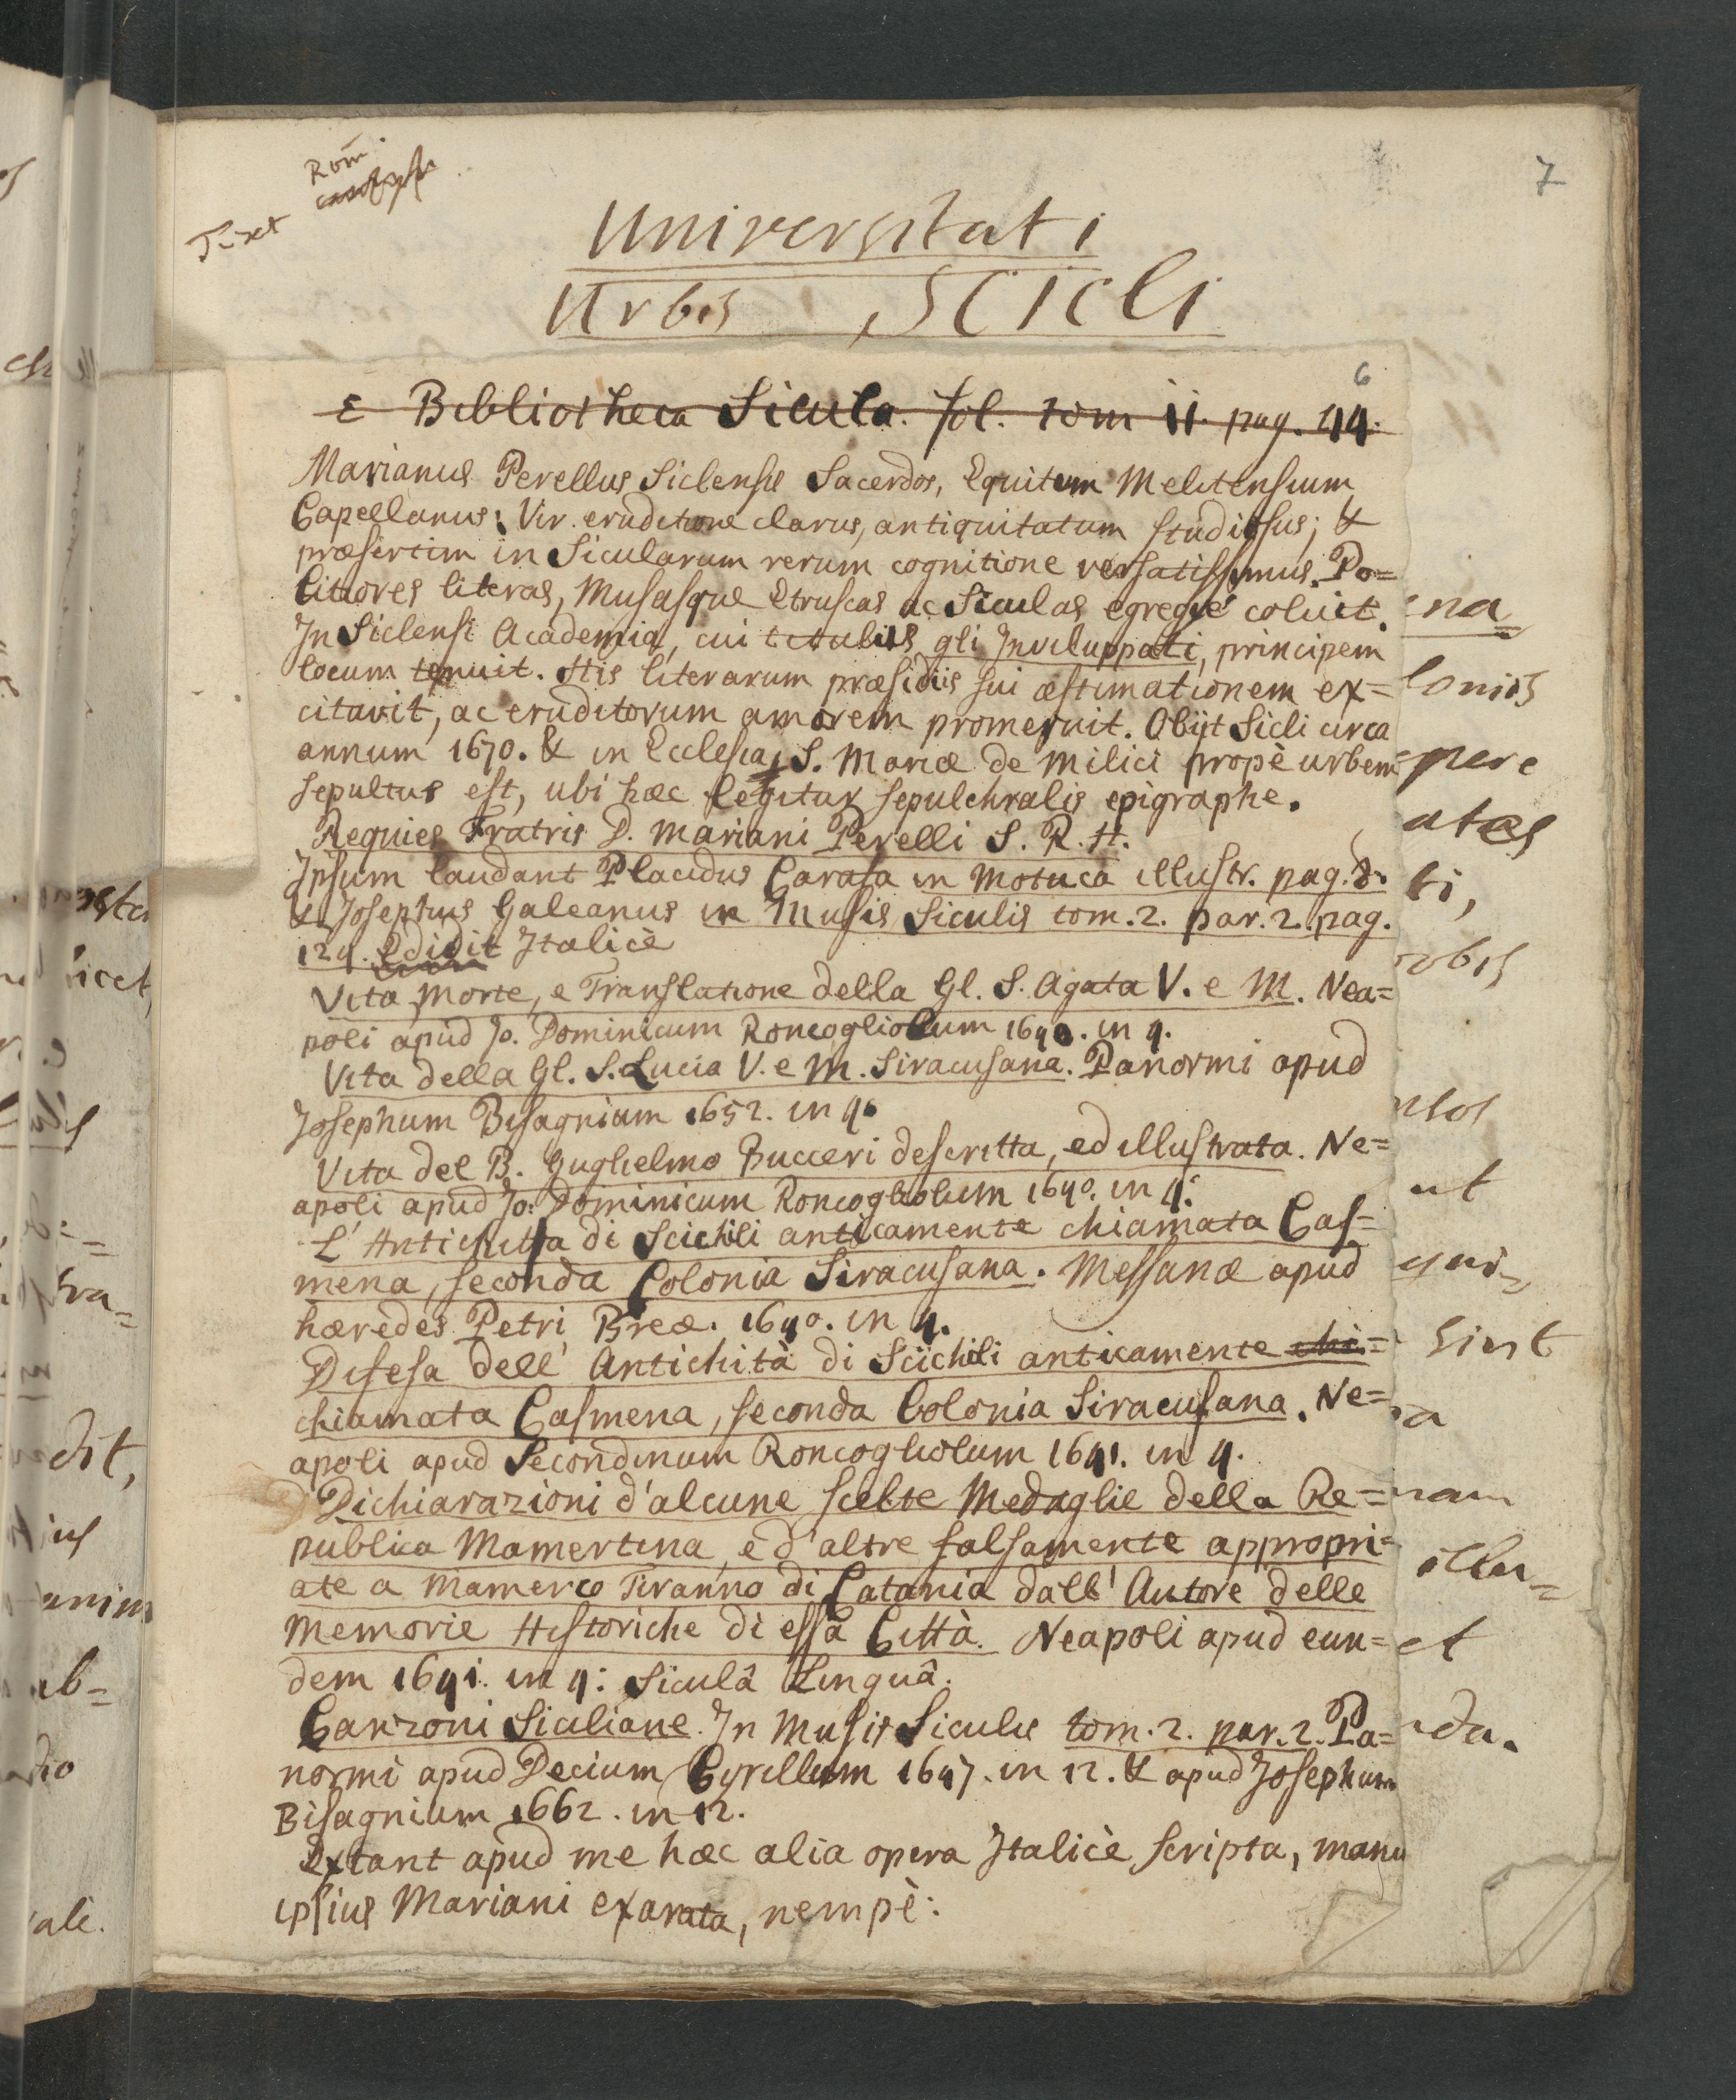 7
Rom
Text
Universitati
Urbis Scicli
6
E Bibliotheca Sicula. fol. tom ii. pag. 44.
Marianus Perellus Siclensis Sacerdos, Equitum Melitensium
Capellanus: Vir eruditione clarus, antiquitatum studiosus; &
præsertim in Sicularum rerum cognitione versatissimus. Po=
litiores literas, Musasque Etruscas ac Siculas egregiè coluit.
In Siclensi Academia, cui titulus gli Inviluppati, principem
locum tenuit. His literarum præsidiis sui æstimationem ex=
citavit, ac eruditorum amorem promeruit. Obijt Sicli circa
annum 1670. & in Ecclesia S. Mariæ de Milici propè urbem
sepultus est, ubi hæc legitur sepulchralis epigraphe.
Requies Fratris D. Mariani Perelli S. R. H.
Ipsum laudant Placidus Carafa in Motuca illustr. pag. 8.
& Josephus Galeanus in Musis Siculis tom. 2. par. 2. pag.
124. Edidit Italicè
Vita, Morte, e Translatione della Gl. S. Agata V. e M. Nea=
poli apud Jo. Dominicum Roncogliolum 1640. in 4.
Vita della Gl. S. Lucia V. e M. Siracusana. Panormi apud
Josephum Bisagnium 1652. in 4.
Vita del B. Guglielmo Bucceri descritta, ed illustrata. Ne=
apoli apud Jo: Dominicum Roncogliolum 1640. in 4.
L'Antichità di Scichili anticamente chiamata Cas=
mena, seconda Colonia Siracusana. Messanæ apud
hæredes Petri Breæ. 1640. in 4.
Difesa dell' Antichità di Scichili anticamente chi=
chiamata Casmena, seconda Colonia Siracusana. Ne=
apoli apud Secondinum Roncogliolum 1641. in 4.
Dichiarazioni d'alcune scelte Medaglie della Re=
publica Mamertina, e d'altre falsamente appropri=
ate a Mamerco Tiranno di Catania dall' Autore delle
Memorie Historiche di essa Città. Neapoli apud eun=
dem 1641. in 4: Siculâ Linguâ.
Canzoni Siciliane. In Musis Siculis tom. 2. par. 2. Pa=
normi apud Decium Cyrillum 1647. in 12. & apud Josephum
Bisagnium 1662. in 12.
Extant apud me hæc alia opera Italicè scripta, manu
ipsius Mariani exarata, nempè:
na
lonios
pere
atas
ti,
rbis
ut
qui=
sint
ram
illu=
et
da.
dit,
ale.